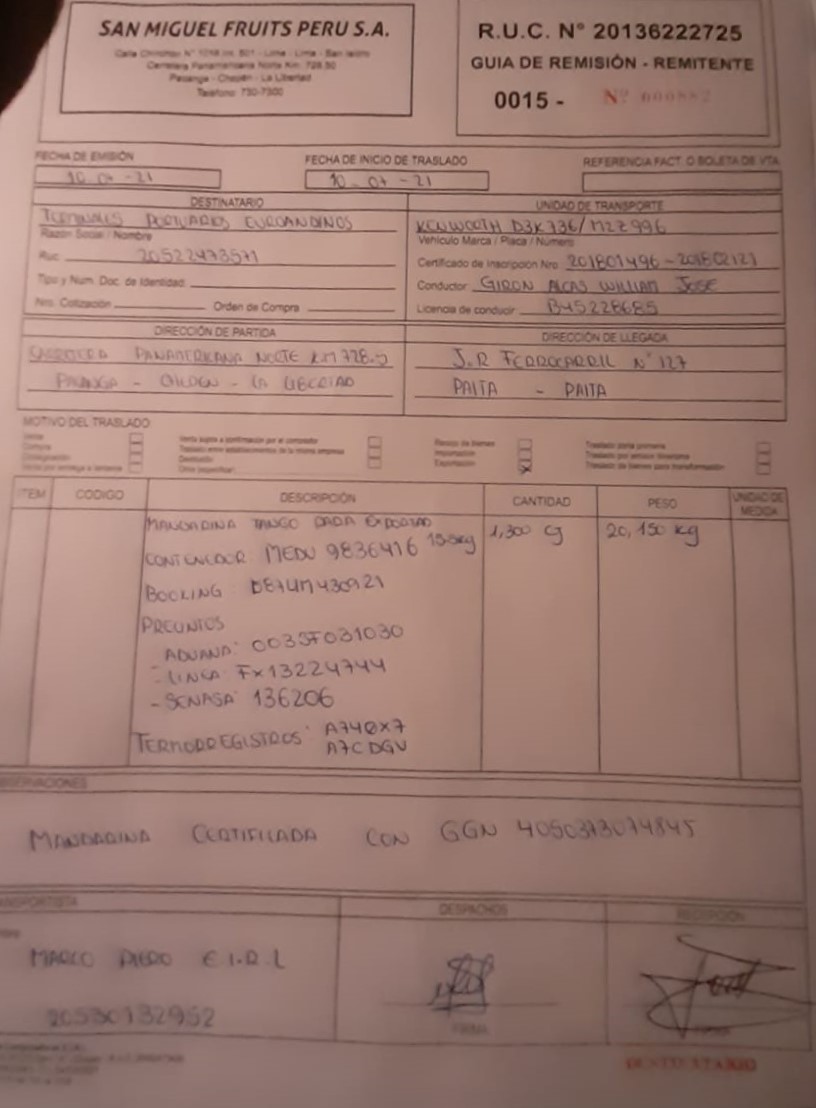 SAN MIGUEL FRUITS PERU S.A.
Carretera Panamericana Norte Km. 728.50
Pacanga - Chepén - La Libertad
Teléfono: 730-7300
R.U.C. N° 20136222725
GUIA DE REMISIÓN - REMITENTE
0015 - Nº 000882
FECHA DE EMISIÓN
10 - 07 - 21
FECHA DE INICIO DE TRASLADO
10 - 07 - 21
REFERENCIA FACT. O BOLETA DE VTA.
DESTINATARIO
TERMINALES PORTUARIOS EUROANDINOS
Razón Social / Nombre
Ruc. 20522473571
Tipo y Num. Doc. de Identidad:
Nro. Cotización Orden de Compra
UNIDAD DE TRANSPORTE
KENWORTH D3K736/ MZZ996
Vehículo Marca / Placa / Número
Certificado de Inscripción Nro. 201801496-201802121
Conductor GIRON ALCAS WILLIAN JOSE
Licencia de conducir B45228685
DIRECCIÓN DE PARTIDA
CARRETERA PANAMERICANA NORTE KM 728.5
PACANGA - CHEPEN - LA LIBERTAD
DIRECCIÓN DE LLEGADA
J.R FERROCARRIL N° 127
PAITA - PAITA
MOTIVO DEL TRASLADO
Venta
Compra
Consignación
Venta sujeta a confirmación por el comprador
Traslado entre establecimientos de la misma empresa
Devolución
Recojo de bienes
Importación
Exportación
Traslado zona primaria
Traslado por emisor itinerante
Traslado de bienes para transformación
ITEM CODIGO DESCRIPCIÓN CANTIDAD PESO UNIDAD DE MEDIDA
MANDARINA TANGO PARA EXPORTAR 1,300 CJ 20,150 kg
CONTENEDOR: MEDU 9836416 15.5kg
BOOKING
PRECINTOS
ADUANA: 003SF031030
- LINEA: FX13224744
- SENASA: 136206
TERMORREGISTROS: A740X7
A7CDGV
OBSERVACIONES
MANDARINA CERTIFICADA CON GGN 4050373074845
TRANSPORTISTA
MARCO PIERO E.I.R.L
20530132952
DESPACHOS
FIRMA
RECEPCIÓN
FIRMA
DESTINATARIO